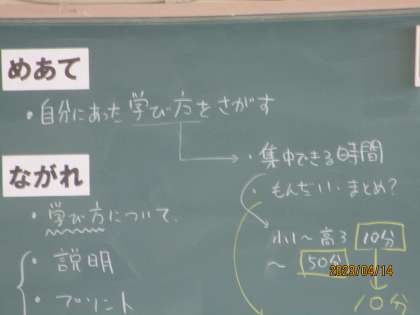 めあて
・自分にあった学び方をさがす
・集中できる時間
ながれ
・もんだい・まとめ?
・学び方について、
小1〜高3 10分
・説明
〜 50分
2023/04/14
・プリント
10分